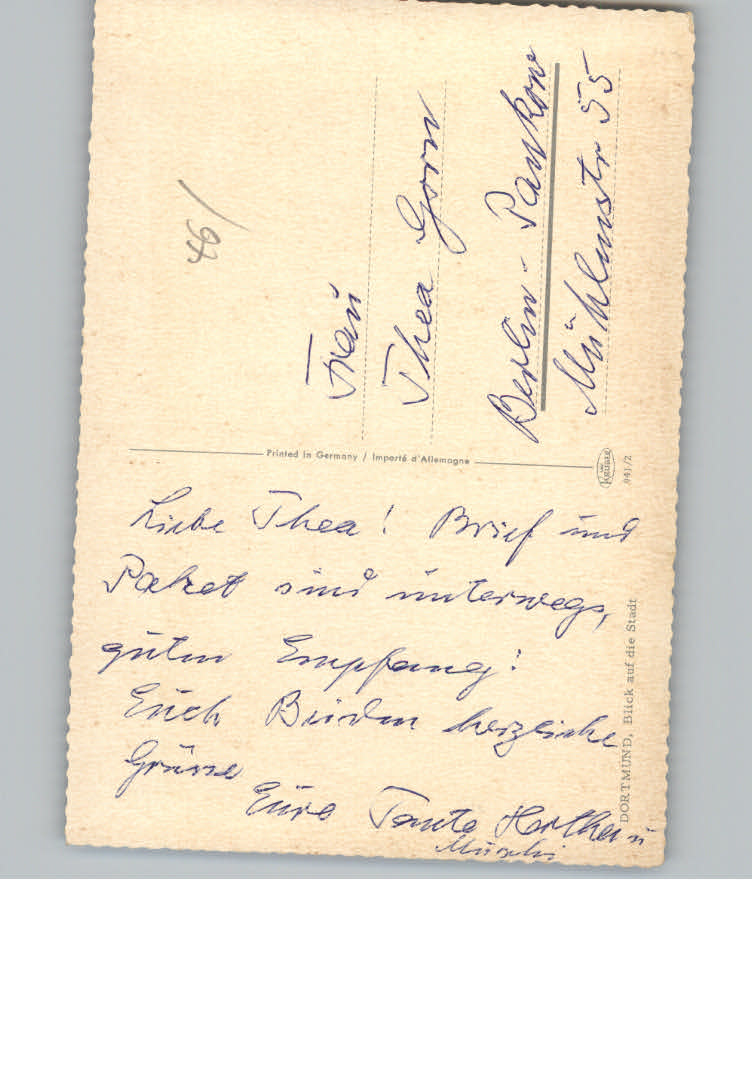 Liebe Thea! Brief und
Paket sind unterwegs,
guten Empfang!
Euch Beiden herzliche
Grüsse
Eure Tante Hertha u
Frau
Thea Gorn
Berlin - Pankow
Mühlenstr 55
46/
Printed in Germany / Importé d'Allemagne
Krüger
941/2
DORTMUND, Blick auf die Stadt